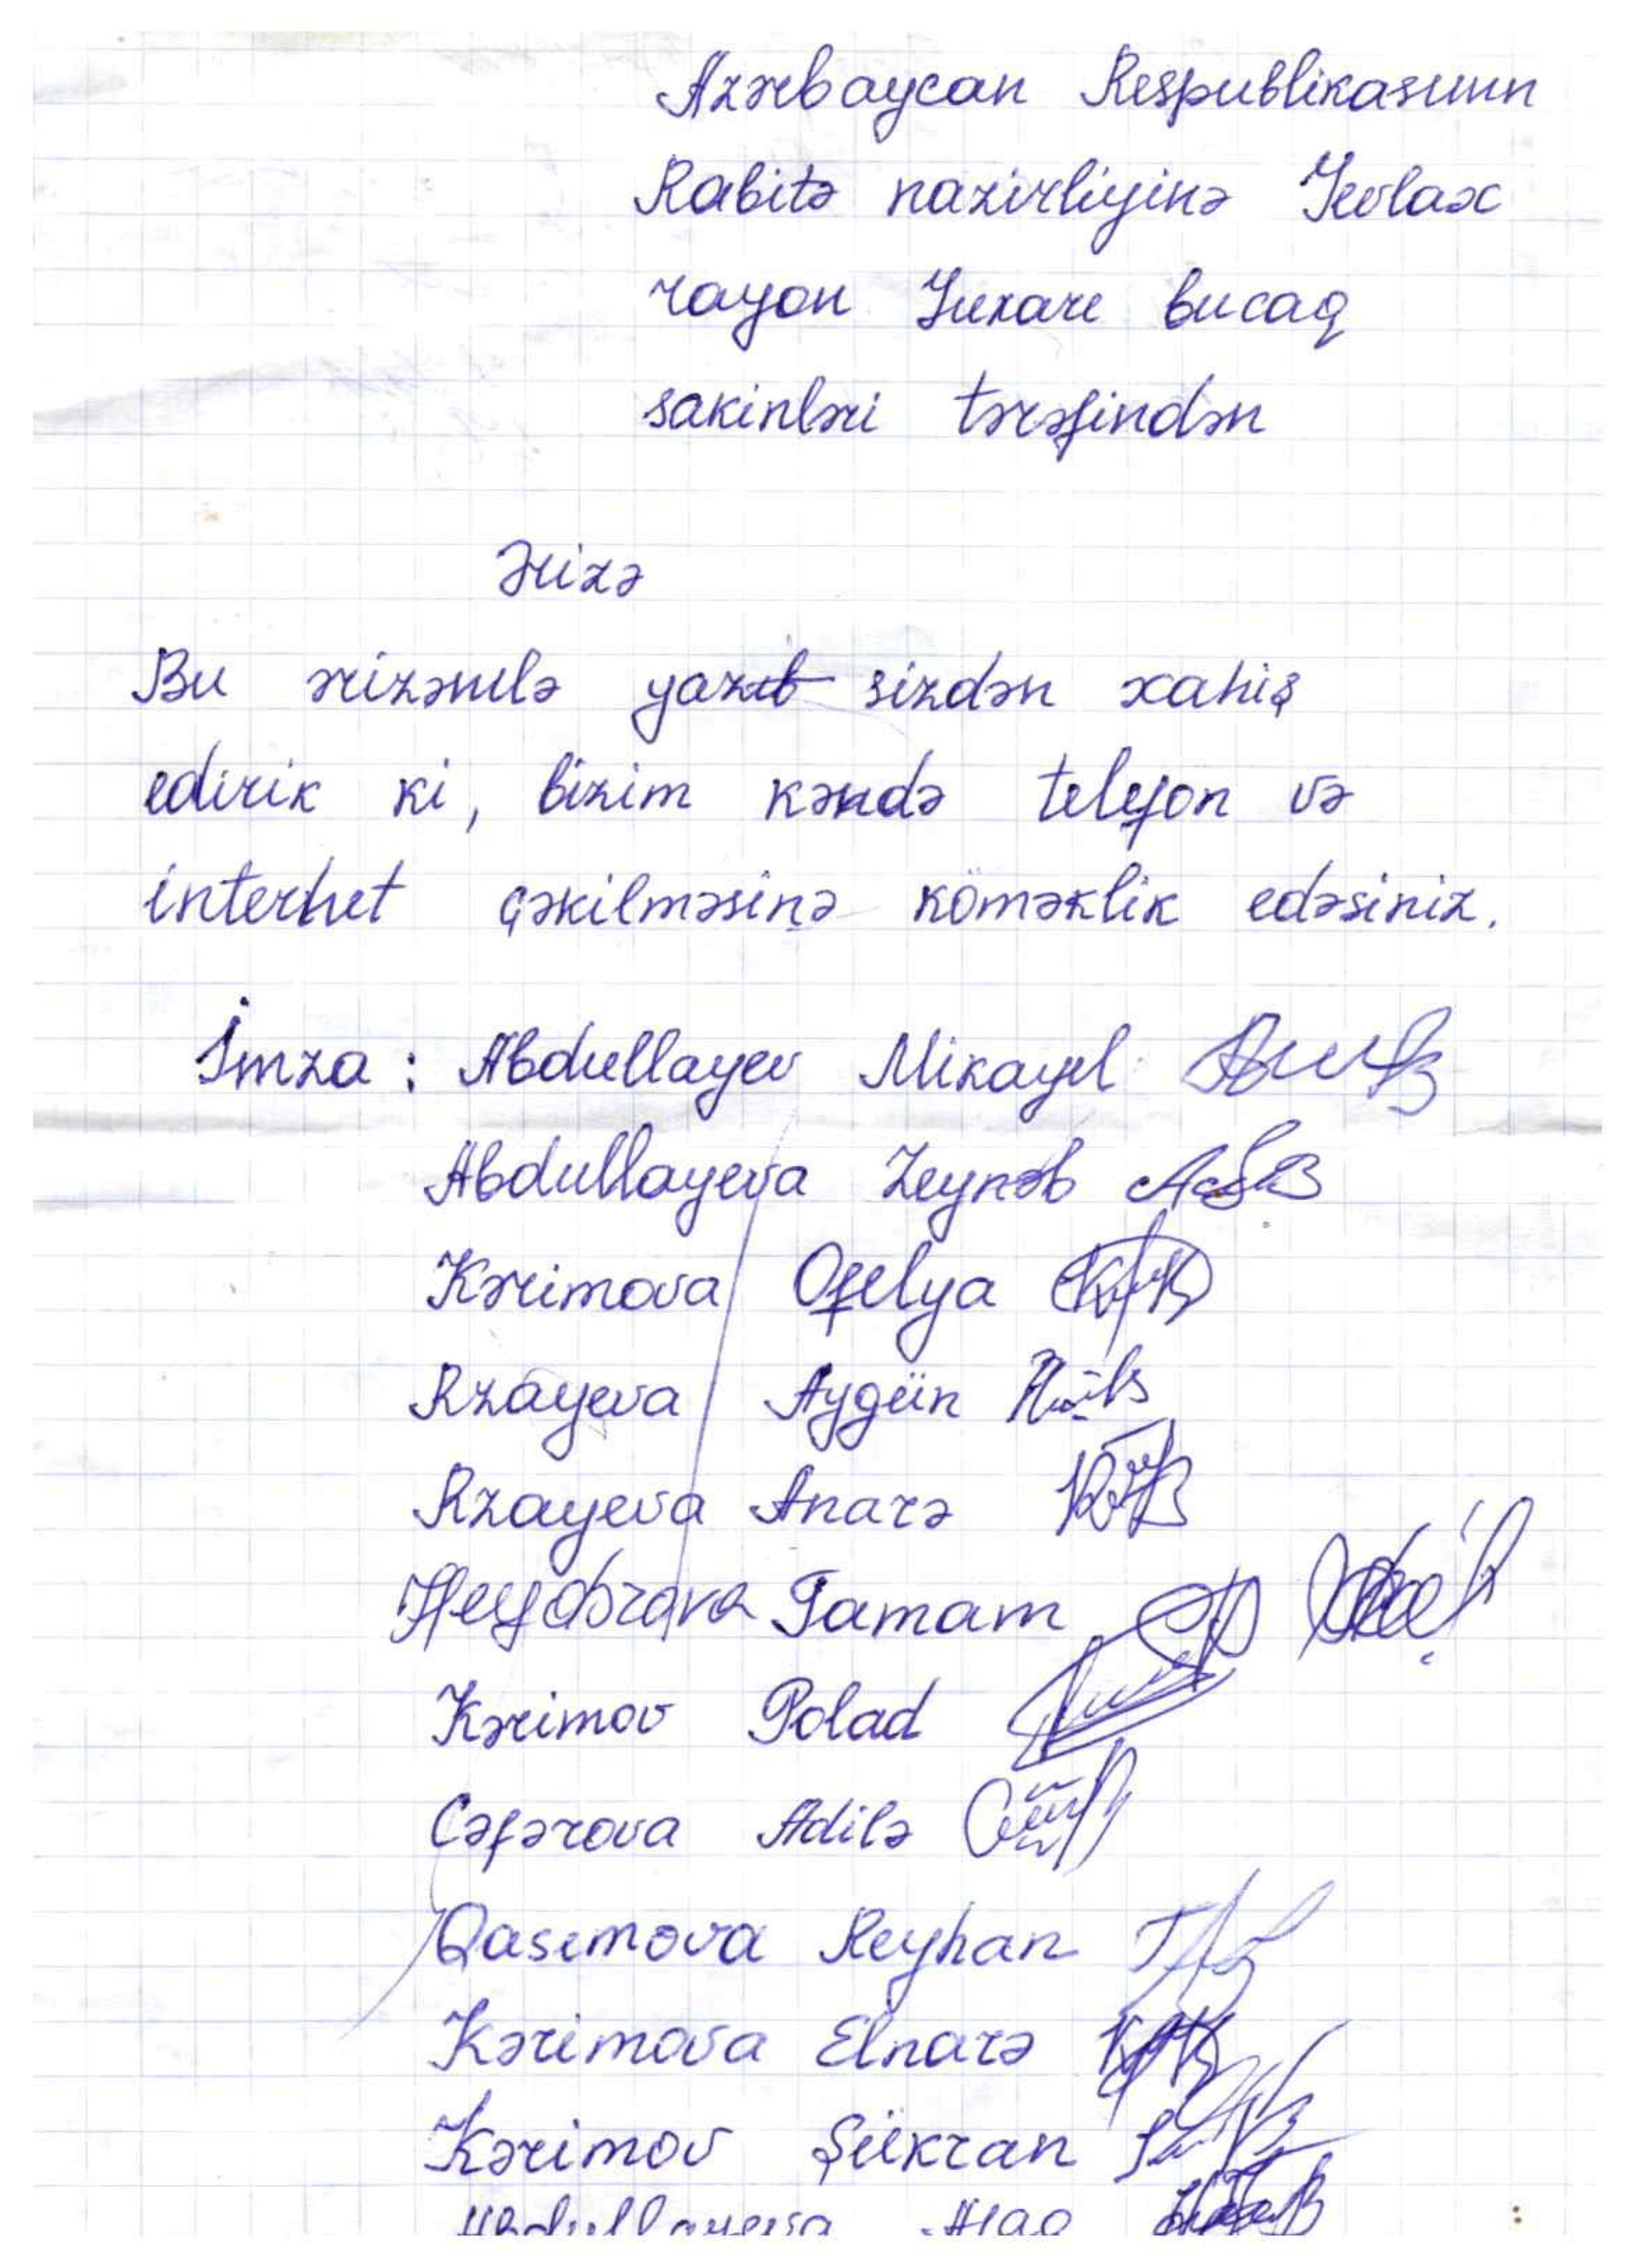 Azərbaycan Respublikasının
Rabitə nazirliyinə Yevlax
rayon Yuxarı bucaq
sakinləri tərəfindən
Ərizə
Bu ərizənilə yazıb sizdən xahiş
edirik ki, bizim kəndə telefon və
internet çəkilməsinə köməklik edəsiniz.
İmza: Abdullayev Mikayıl
Abdullayeva Zeynəb
Kərimova Ofelya
Rzayeva Aygün
Rzayeva Anarə
Heydərova Tamam
Kərimov Polad
Cəfərova Adilə
Qasımova Reyhan
Kərimova Elnarə
Kərimov Şükran
Abdullayeva